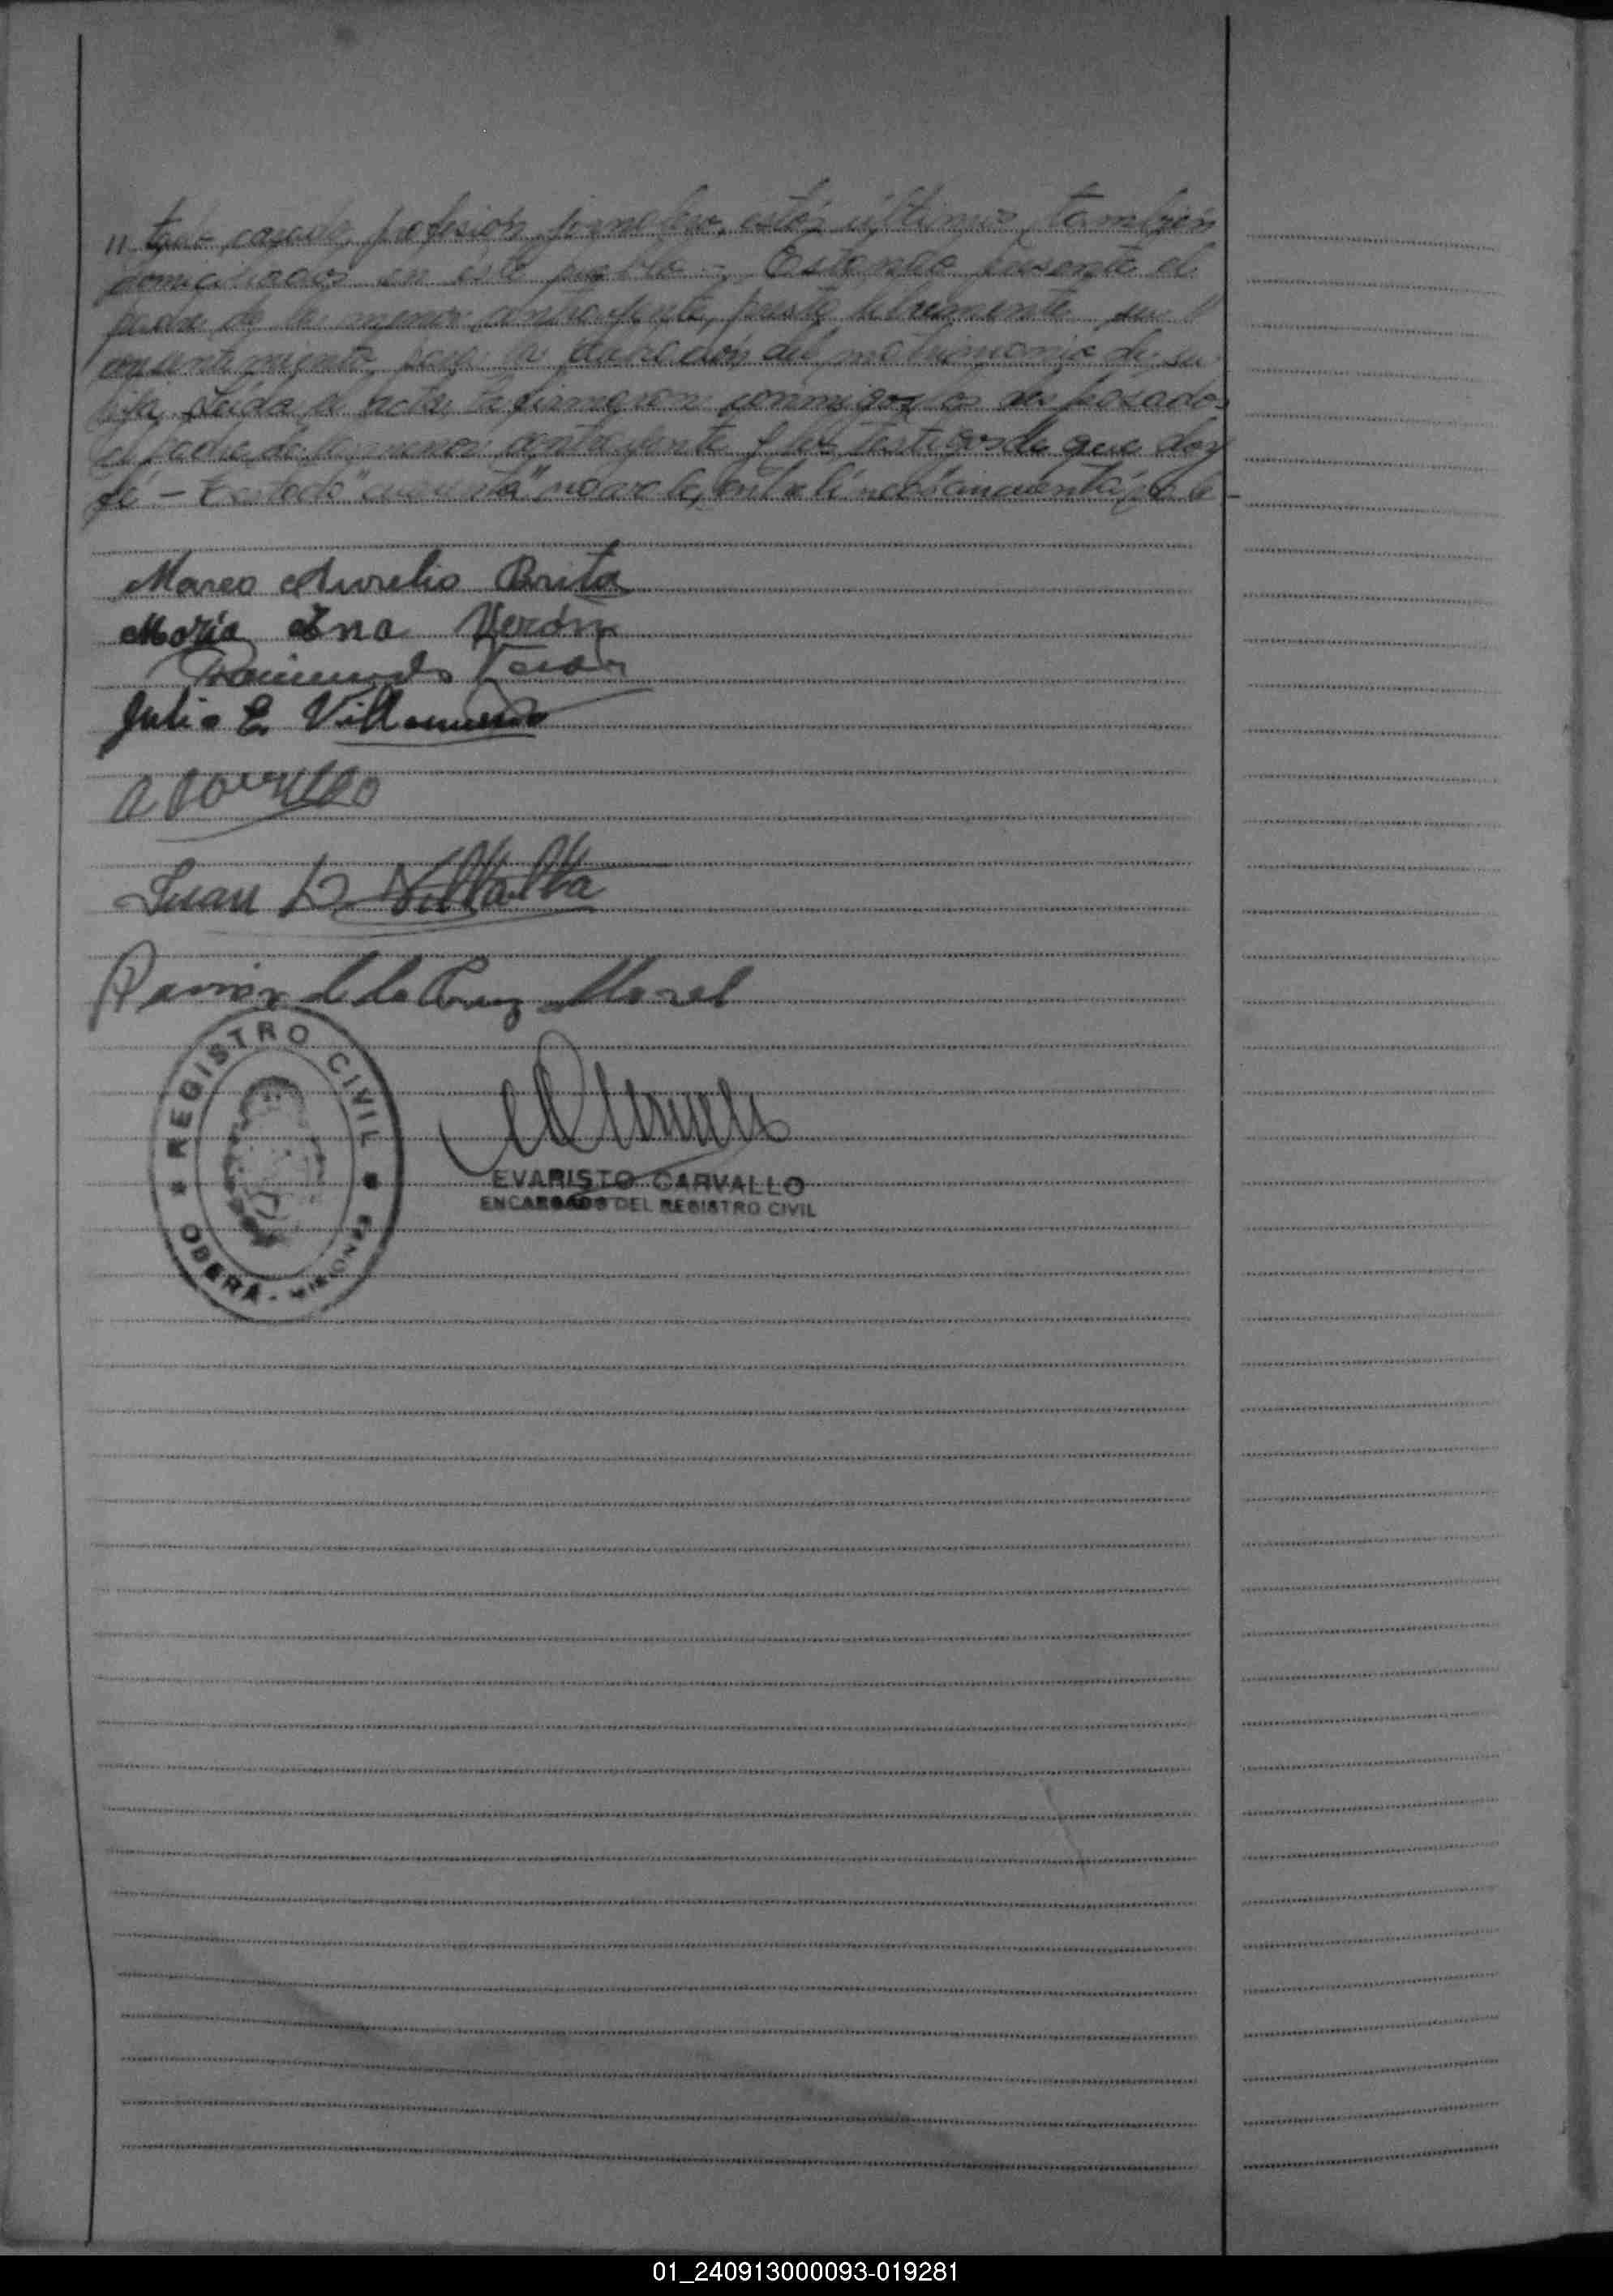 " tado casado, profesión jornalero, estós últimos también
domiciliados en este pueblo - Estando presente el
padre de la menor contrayente, presta libremente su
consentimiento para la del matrimonio de su
hija, Leída el acta, la firmaron conmigo, los desposados
el padre de la menor contrayente y los testigos de que doy
fé - Testado "cuarenta" no vale, entre líneas "cincuenta", vale -
Marco Aurelio Brito
María Ena Verón
Raimundo Verón
Julio E. Villanueva
Juan D. Villalba
Ramón de la Cruz Morel
REGISTRO CIVIL
OBERA - MISIONES
EVARISTO CARVALLO
ENCARGADO DEL REGISTRO CIVIL
01_240913000093-019281